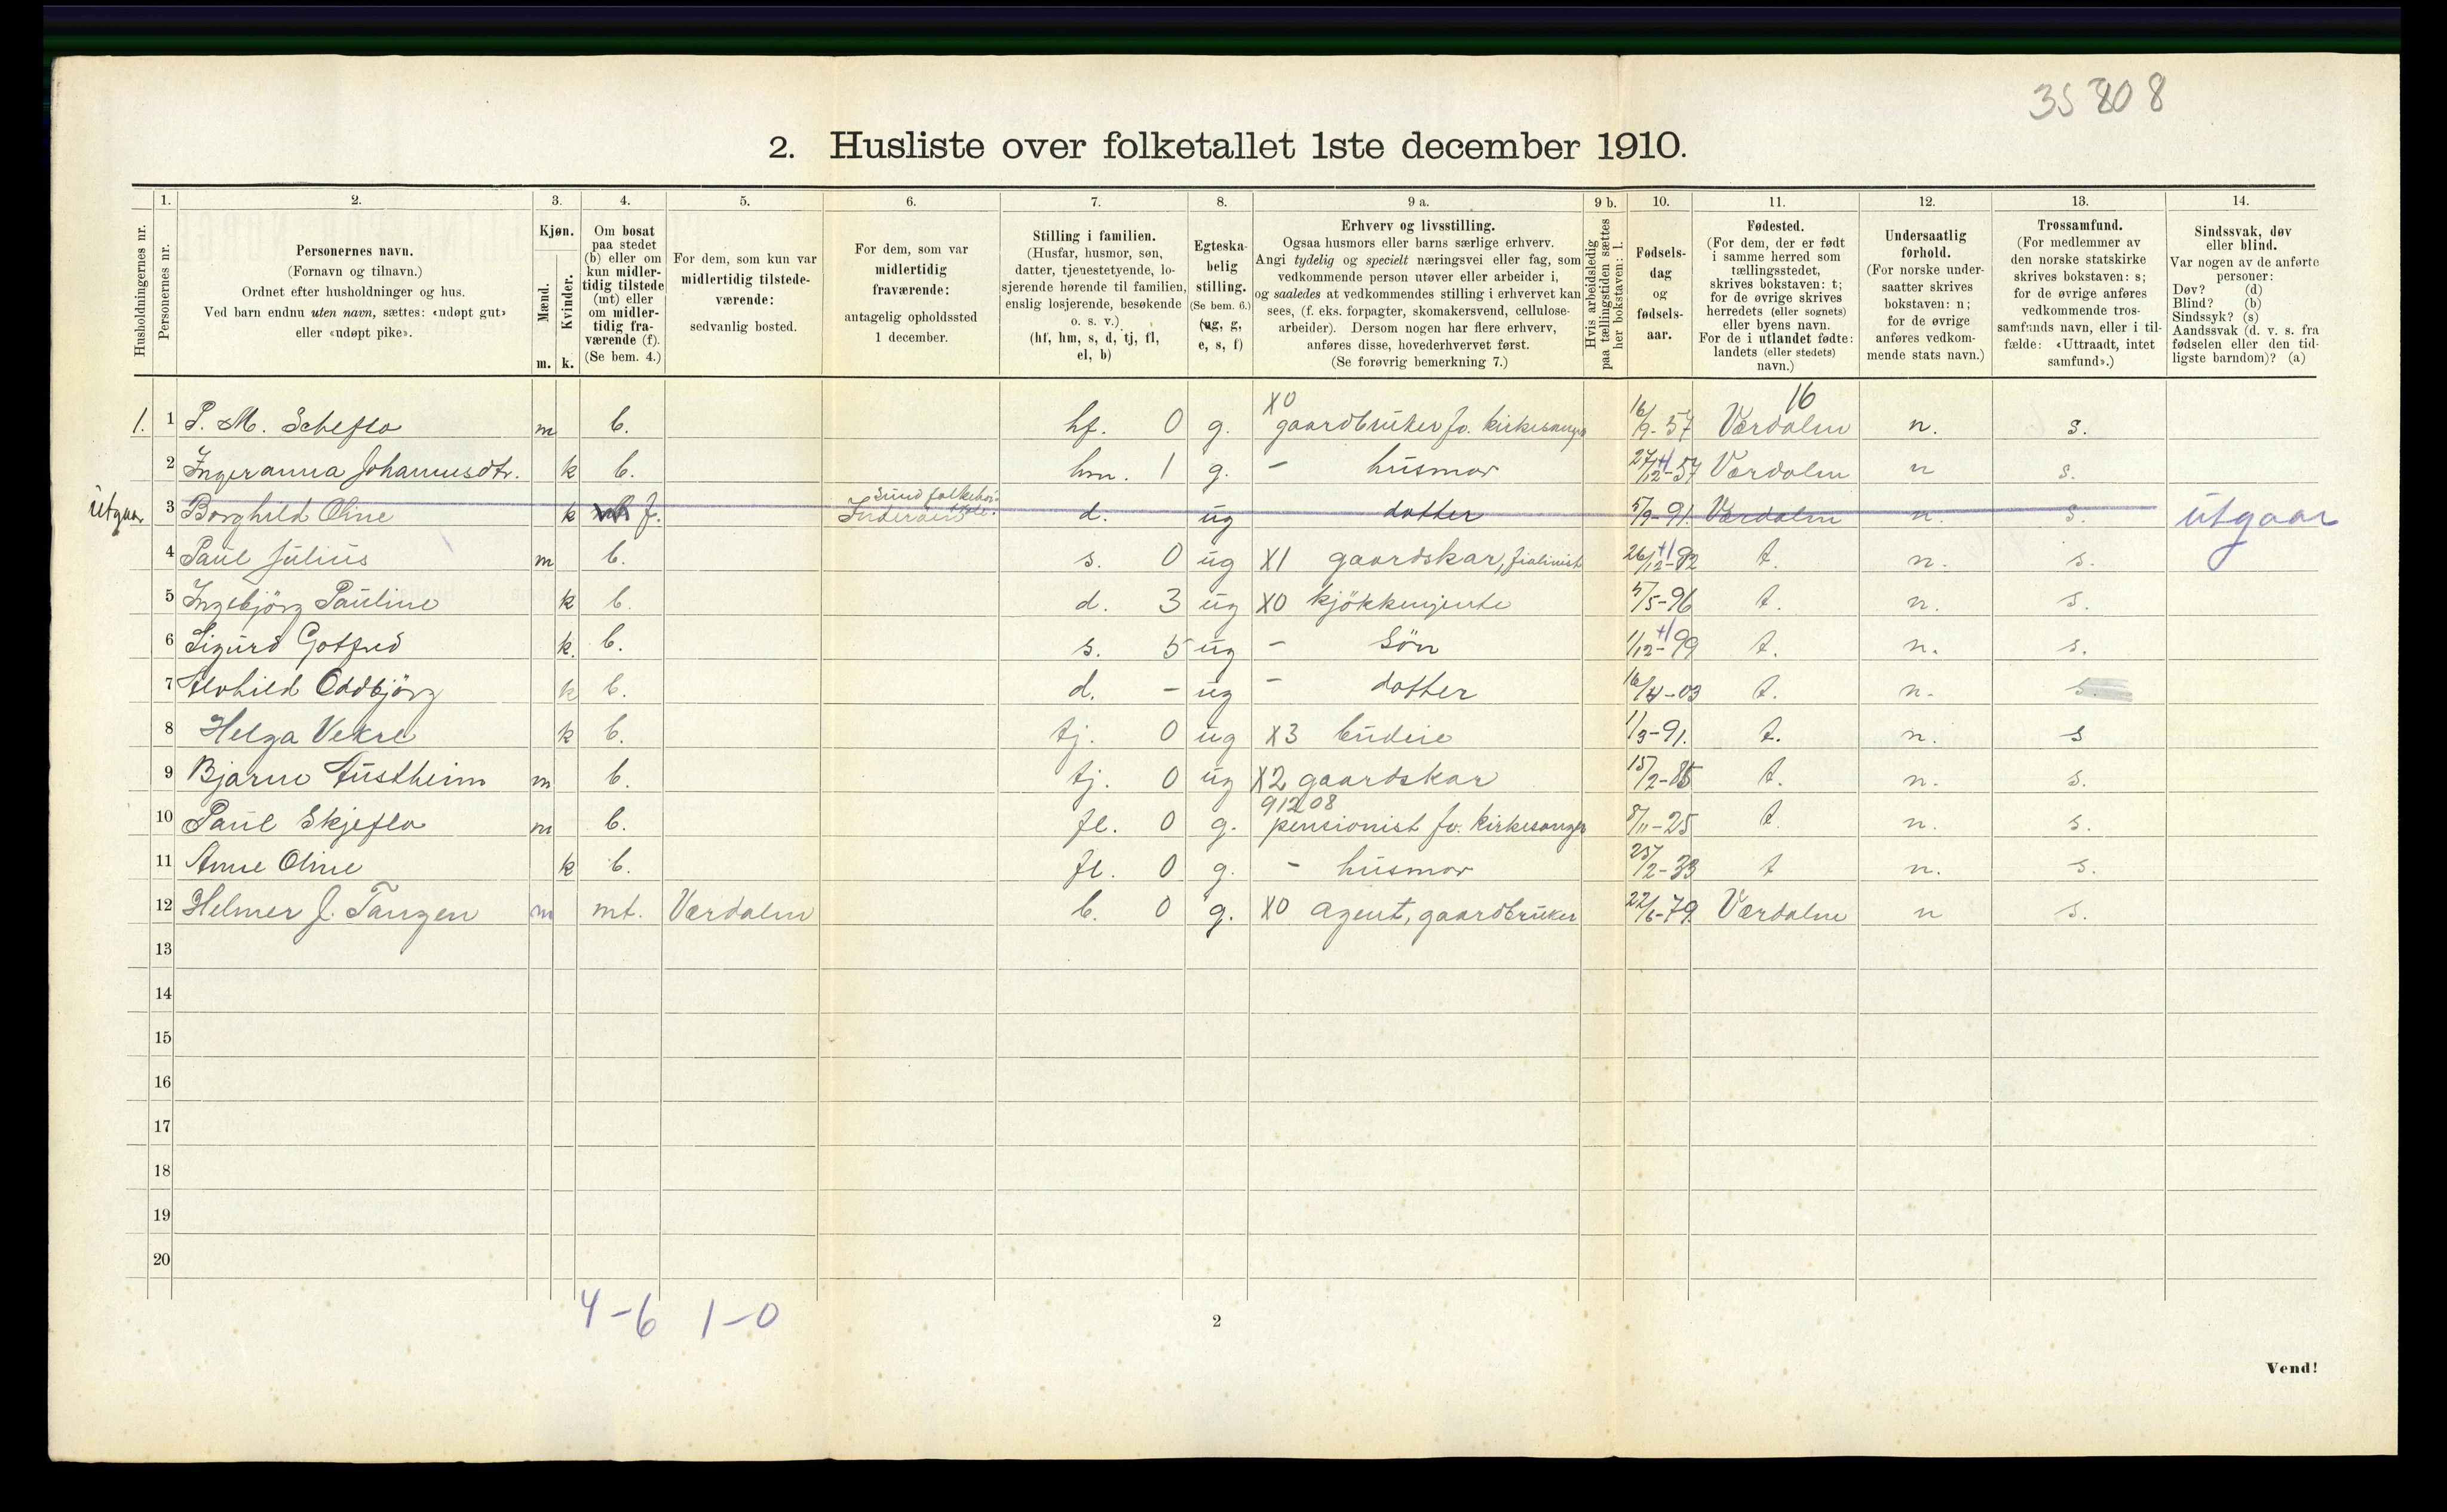 35808
2. Husliste over folketallet 1ste december 1910.
1. 2. 3. 4. 5. 6. 7. 8. 9 a. 9 b. 10. 11. 12. 13. 14.
Husholdningernes nr.
Personernes nr.
Personernes navn.
(Fornavn og tilnavn.)
Ordnet efter husholdninger og hus.
Ved barn endnu uten navn, sættes: «udøpt gut»
eller «udøpt pike».
Kjøn.
Mænd.
Kvinder.
m. k.
Om bosat
paa stedet
(b) eller om
kun midler-
tidig tilstede
(mt) eller
om midler-
tidig fra-
værende (f).
(Se bem. 4.)
For dem, som kun var
midlertidig tilstede-
værende:
sedvanlig bosted.
For dem, som var
midlertidig
fraværende:
antagelig opholdssted
1 december.
Stilling i familien.
(Husfar, husmor, søn,
datter, tjenestetyende, lo-
sjerende hørende til familien,
enslig losjerende, besøkende
o. s. v.)
(hf, hm, s, d, tj, fl,
el, b)
Egteska-
belig
stilling.
(Se bem. 6.)
(ug, g,
e, s, f)
Erhverv og livsstilling.
Ogsaa husmors eller barns særlige erhverv.
Angi tydelig og specielt næringsvei eller fag, som
vedkommende person utøver eller arbeider i,
og saaledes at vedkommendes stilling i erhvervet kan
sees, (f. eks. forpagter, skomakersvend, cellulose-
arbeider). Dersom nogen har flere erhverv,
anføres disse, hovederhvervet først.
(Se forøvrig bemerkning 7.)
Hvis arbeidsledig
paa tællingstiden sættes
her bokstaven: l.
Fødsels-
dag
og
fødsels-
aar.
Fødested.
(For dem, der er født
i samme herred som
tællingsstedet,
skrives bokstaven: t;
for de øvrige skrives
herredets (eller sognets)
eller byens navn.
For de i utlandet fødte:
landets (eller stedets)
navn.)
Undersaatlig
forhold.
(For norske under-
saatter skrives
bokstaven: n;
for de øvrige
anføres vedkom-
mende stats navn.)
Trossamfund.
(For medlemmer av
den norske statskirke
skrives bokstaven: s;
for de øvrige anføres
vedkommende tros-
samfunds navn, eller i til-
fælde: «Uttraadt, intet
samfund».)
Sindssvak, døv
eller blind.
Var nogen av de anførte
personer:
Døv? (d)
Blind? (b)
Sindssyk? (s)
Aandssvak (d. v. s. fra
fødselen eller den tid-
ligste barndom)? (a)
X0 16
1. 1 P. M. Scheflo m b. hf. 0 g. gaardbruker fv. kirkesanger 16/9-57 Værdalen n. s.
2 Ingeranna Johannesdtr. k b. hm. 1 g. - husmor 27/12-57 Værdalen n s.
utgaar 3 Borghild Oline k f. Inderøens d. ug datter 5/9-91. Værdalen n. s. utgaar
4 Paul Julius m b. s. 0 ug X1 gaardskar, 26/12-92 t. n. s.
5 Ingebjörg Pauline k b. d. 3 ug X0 kjökkenjente 5/5-96 t. n. s.
6 Sigurd Gotfred k. b. s. 5 ug - Sön 1/12-99 t. n. s.
7 Alvhild Oddbjörg k b. d. - ug - datter 16/4-03 t. n. s.
8 Helga Vekre k b. tj. 0 ug X3 budeie 1/3-91. t. n. s
9 Bjarne Austheim m b. tj. 0 ug X2 gaardskar 15/2-85 t. n. s.
91208
10 Paul Skjeflo m b. fl. 0 g. pensionist fv. kirkesanger 8/11-25 t. n. s.
11 Anne Oline k b. fl. 0 g. - husmor 25/2-33 t n. s.
12 Helmer J. Tangen m mt. Værdalen b. 0 g. X0 agent, gaardbruker 22/6-79. Værdalen n s.
13
14
15
16
17
18
19
20
4-6 1-0
2
Vend!